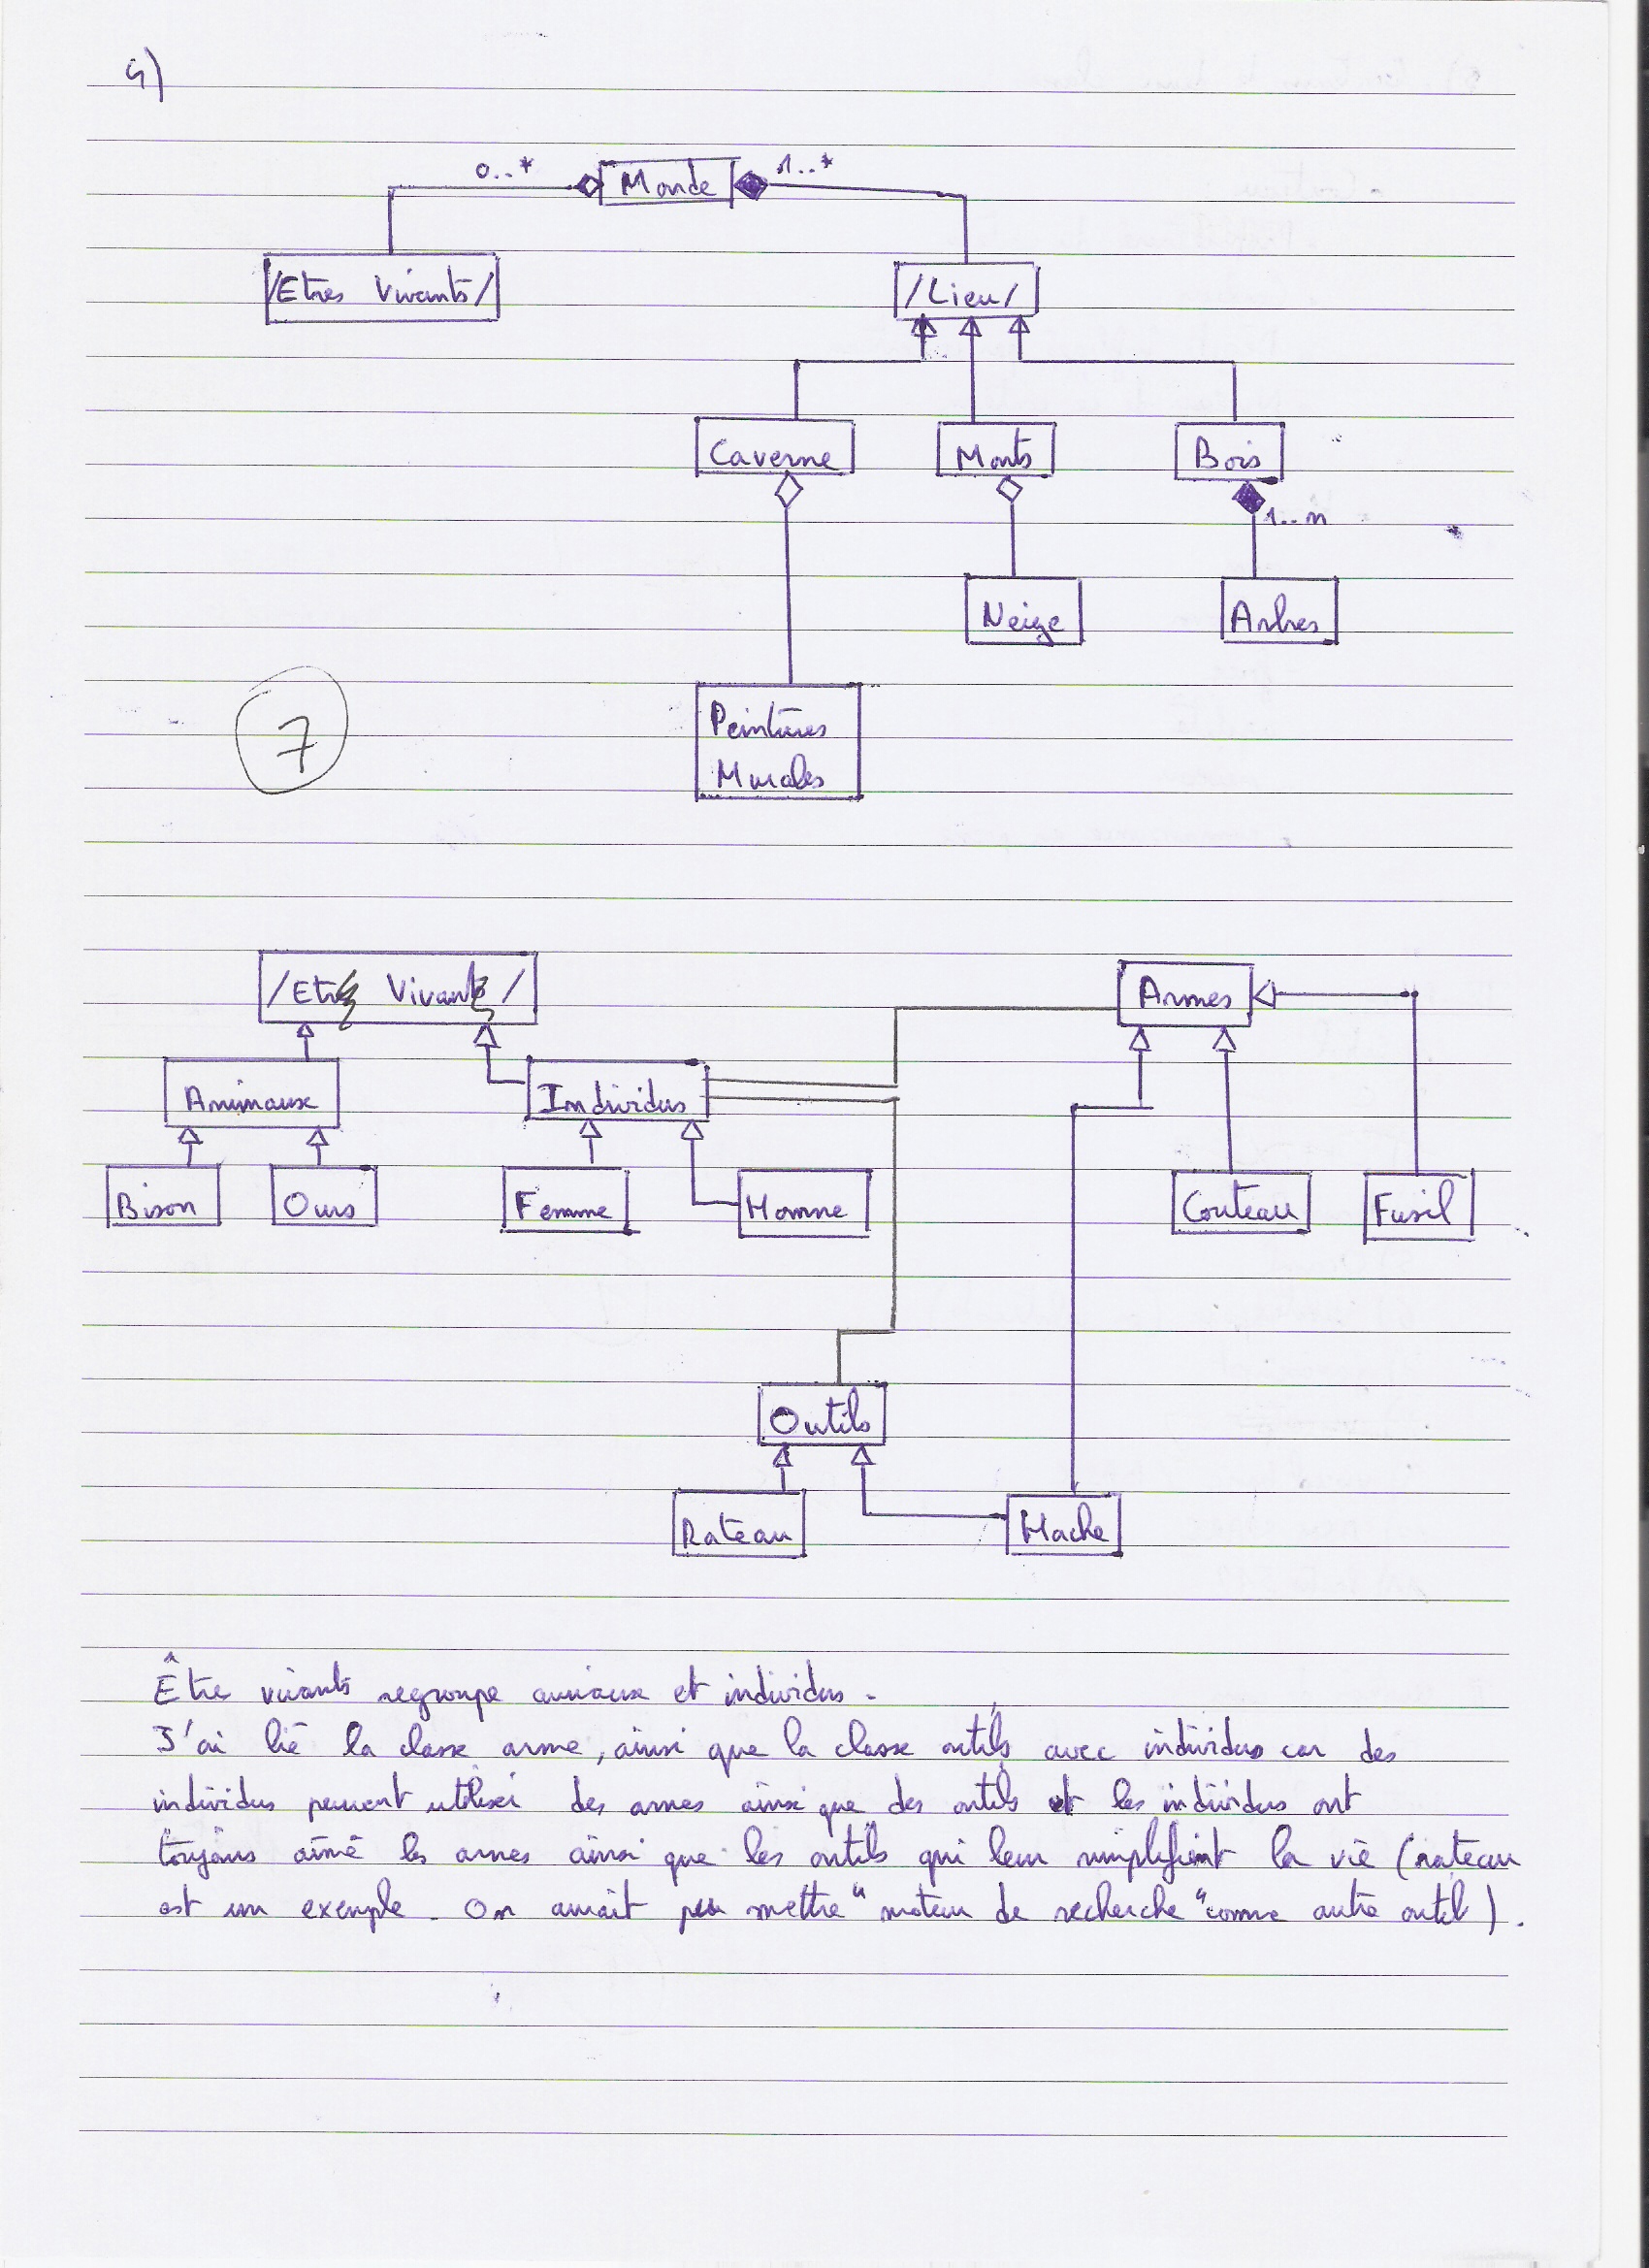 4)
0..* Monde 1..*
/Etres Vivants/ /Lieu/
Caverne Monts Bois
1..n
Neige Arbres
7
Peintures
Murales
/Etres Vivants/ Armes
Animaux Individus
Bison Ours Femme Homme Couteau Fusil
Outils
Rateau Hache
Être vivants regroupe animaux et individus.
J'ai lié la classe arme, ainsi que la classe outils avec individus car des
individus peuvent utiliser des armes ainsi que des outils et les individus ont
toujours aimé les armes ainsi que les outils qui leur simplifient la vie (rateau
est un exemple. On aurait peu mettre "moteur de recherche" comme autre outil).